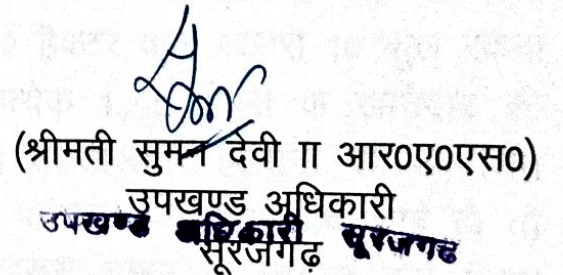 (श्रीमती सुमन देवी II आर0ए0एस0)
उपखण्ड अधिकारी
उपखण्ड अधिकारी सूरजगढ
सूरजगढ़